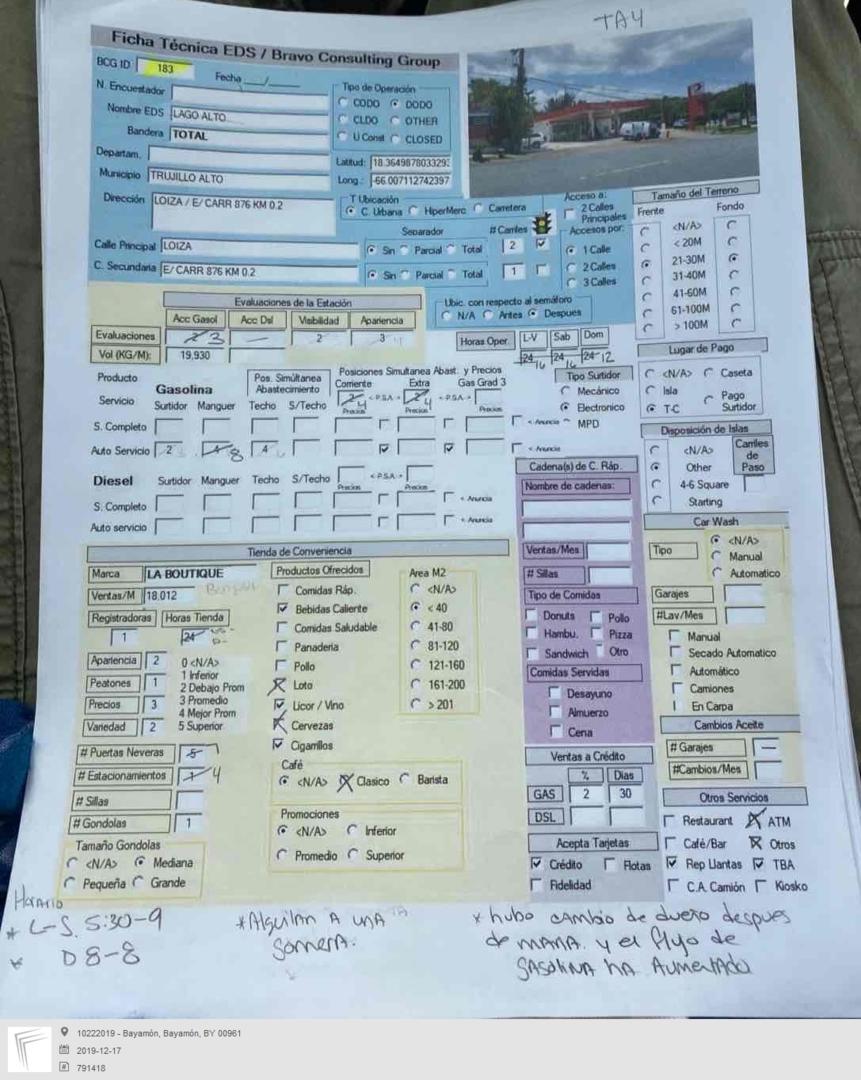 TA4
Ficha Técnica EDS / Bravo Consulting Group
BCG ID 183 Fecha __/__
N. Encuestador
Nombre EDS LAGO ALTO
Bandera TOTAL
Departam.
Municipio TRUJILLO ALTO
Tipo de Operación
CODO DODO
CLDO OTHER
U Const CLOSED
Latitud: 18.364987803329
Long.: -66.007112742397
Dirección LOIZA / E/ CARR 876 KM 0.2
T Ubicación
C. Urbana HiperMerc Carretera
Separador # Carriles
Calle Principal LOIZA Sin Parcial Total 2
C. Secundaria E/ CARR 876 KM 0.2 Sin Parcial Total 1
Acceso a:
2 Calles Principales
Accesos por:
1 Calle
2 Calles
3 Calles
Tamaño del Terreno
Frente Fondo
<N/A>
< 20M
21-30M
31-40M
41-60M
61-100M
> 100M
Ubic. con respecto al semáforo
N/A Antes Despues
Evaluaciones de la Estación
Acc Gasol Acc Dsl Visibilidad Apariencia
Evaluaciones 3 — 2 3
Vol (KG/M): 19,930
Horas Oper. L-V Sab Dom
24 24 24
16 16 12
Lugar de Pago
<N/A> Caseta
Isla Pago Surtidor
T-C
Producto Gasolina
Servicio Surtidor Manguer
Pos. Simúltanea Abastecimiento
Techo S/Techo
Posiciones Simultanea Abast. y Precios
Corriente Extra Gas Grad 3
< P.S.A > < P.S.A >
Precios Precios Precios
Tipo Surtidor
Mecánico
Electronico
MPD
S. Completo < Anuncia
Auto Servicio 2 8 4 < Anuncia
Disposición de Islas
<N/A>
Other
4-6 Square
Starting
Carriles de Paso
Diesel Surtidor Manguer Techo S/Techo < P.S.A >
Precios Precios
S. Completo < Anuncia
Auto servicio < Anuncia
Cadena(s) de C. Ráp.
Nombre de cadenas:
Ventas/Mes
# Sillas
Tipo de Comidas
Donuts Pollo
Hambu. Pizza
Sandwich Otro
Comidas Servidas
Desayuno
Almuerzo
Cena
Car Wash
Tipo <N/A>
Manual
Automatico
Garajes
#Lav/Mes
Manual
Secado Automatico
Automático
Camiones
En Carpa
Cambios Aceite
# Garajes —
#Cambios/Mes
Tienda de Conveniencia
Marca LA BOUTIQUE
Ventas/M 18,012
Registradoras Horas Tienda
1 24
Apariencia 2
Peatones 1
Precios 3
Variedad 2
0 <N/A>
1 Inferior
2 Debajo Prom
3 Promedio
4 Mejor Prom
5 Superior
# Puertas Neveras 5
# Estacionamientos 4
# Sillas
# Gondolas 1
Tamaño Gondolas
<N/A> Mediana
Pequeña Grande
Productos Ofrecidos
Comidas Ráp.
Bebidas Caliente
Comidas Saludable
Panaderia
Pollo
Loto
Licor / Vino
Cervezas
Cigarrillos
Area M2
<N/A>
< 40
41-80
81-120
121-160
161-200
> 201
Café
<N/A> Clasico Barista
Promociones
<N/A> Inferior
Promedio Superior
Ventas a Crédito
% Dias
GAS 2 30
DSL
Acepta Tarjetas
Crédito Flotas
Fidelidad
Otros Servicios
Restaurant ATM
Café/Bar Otros
Rep Llantas TBA
C.A. Camión Kiosko
Horario
* L-S. 5:30-9
* D 8-8
* Alquilan A una gomera.
* hubo cambio de dueño despues
de MARIA. y el flujo de
GASOLINA ha Aumentado
10222019 - Bayamón, Bayamón, BY 00961
2019-12-17
791418